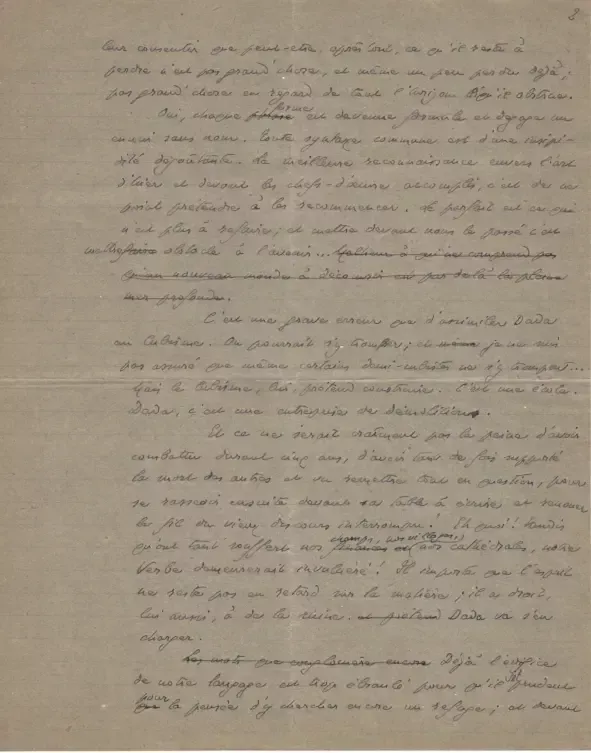 2
leur consentir que peut-être, après tout, ce qu'il reste à
perdre n'est pas grand'chose, et même un peu perdu déjà;
pas grand'chose en regard de tout l'horizon qu'il obstrue.
Oui, chaque forme est devenue formule et dégage un
ennui sans nom. Toute syntaxe commune est d'une insipi-
dité dégoûtante. La meilleure reconnaissance envers l'art
d'hier et devant les chefs-d'œuvre accomplis, c'est de ne
point prétendre à les recommencer. Le parfait est ce qui
n'est plus à refaire; et mettre devant nous le passé c'est
mettre obstacle à l'avenir... Malheur à qui ne comprend pas
qu'un nouveau monde à découvrir est par delà la plaine
mer profonde.
C'est une grave erreur que d'assimiler Dada
au Cubisme. On pourrait s'y tromper; et même je ne suis
pas assuré que même certains demi-cubistes ne s'y trompent...
Mais le Cubisme, lui, prétend construire. C'est une école.
Dada, c'est une entreprise de démolition.
Et ce ne serait vraiment pas la peine d'avoir
combattu durant cinq ans, d'avoir tant de fois supporté
la mort des autres et vu remettre tout en question, pour
se rasseoir ensuite devant sa table à écrire et renouer
le fil du vieux discours interrompu! Eh quoi! tandis
champs, nos villages,
qu'ont tant souffert nos nos cathédrales, notre
Verbe demeurerait invulnéré! Il importe que l'esprit
ne reste pas en retard sur la matière; il a droit,
lui aussi, à de la ruine. et prétend Dada va s'en
charger.
Les mots que encore Déjà l'édifice
de notre langage est trop ébranlé pour qu'il soit prudent
pour la pensée d'y chercher encore un refuge; et devant